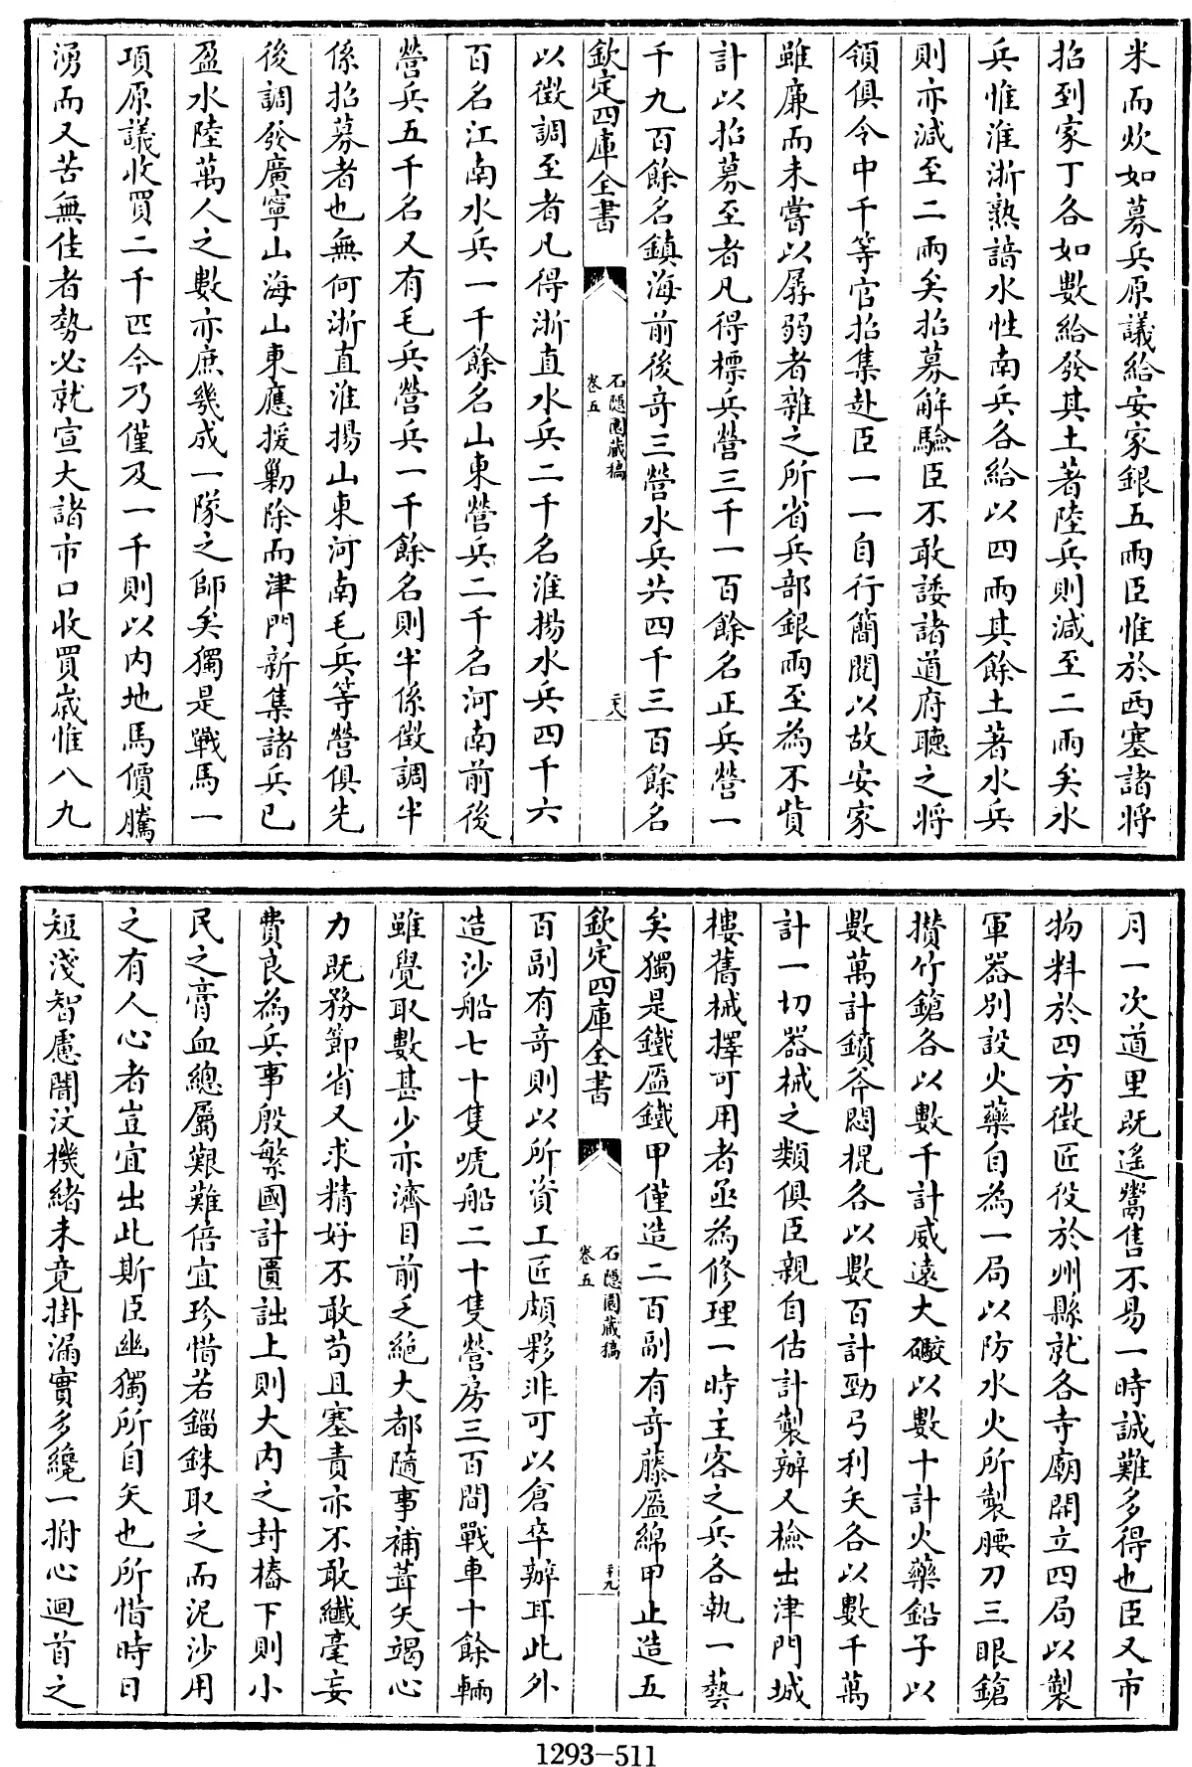 米而炊如募兵原議給安家銀五兩臣惟於西塞諸將
招到家丁各如數給發其土著陸兵則減至二兩矣水
兵惟淮浙熟諳水性南兵各給以四兩其餘土著水兵
則亦減至二兩矣招募解驗臣不敢諉諸道府聽之將
領俱令中千等官招集赴臣一一自行簡閱以故安家
雖廉而未嘗以孱弱者雜之所省兵部銀兩至為不貲
計以招募至者凡得標兵營三千一百餘名正兵營一
千九百餘名鎮海前後奇三營水兵共四千三百餘名
欽定四庫全書
石隱園藏稿
卷五
二十八
以徵調至者凡得浙直水兵二千名淮揚水兵四千六
百名江南水兵一千餘名山東營兵二千名河南前後
營兵五千名又有毛兵營兵一千餘名則半係徵調半
係招募者也無何浙直淮揚山東河南毛兵等營俱先
後調發廣寧山海山東應援勦除而津門新集諸兵已
盈水陸萬人之數亦庶幾成一隊之師矣獨是戰馬一
項原議收買二千匹今乃僅及一千則以內地馬價騰
湧而又苦無佳者勢必就宣大諸市口收買歲惟八九
月一次道里既遙鬻售不易一時誠難多得也臣又市
物料於四方徵匠役於州縣就各寺廟開立四局以製
軍器別設火藥自為一局以防水火所製腰刀三眼鎗
攢竹鎗各以數千計威遠大礮以數十計火藥鉛子以
數萬計鐨斧悶棍各以數百計勁弓利矢各以數千萬
計一切器械之類俱臣親自估計製辦又檢出津門城
樓舊械擇可用者亟為修理一時主客之兵各執一藝
矣獨是鐵盔鐵甲僅造二百副有奇藤盔綿甲止造五
欽定四庫全書
石隱園藏稿
卷五
二十九
百副有奇則以所資工匠頗夥非可以倉卒辦耳此外
造沙船七十隻唬船二十隻營房三百間戰車十餘輛
雖覺取數甚少亦濟目前之絕大都隨事補葺矢竭心
力既務節省又求精好不敢苟且塞責亦不敢纖毫妄
費良為兵事殷繁國計匱詘上則大內之封樁下則小
民之膏血總屬艱難倍宜珍惜若錙銖取之而泥沙用
之有人心者豈宜出此斯臣幽獨所自矢也所惜時日
短淺智慮闇汶機緒未竟掛漏實多纔一拊心迴首之
1293-511